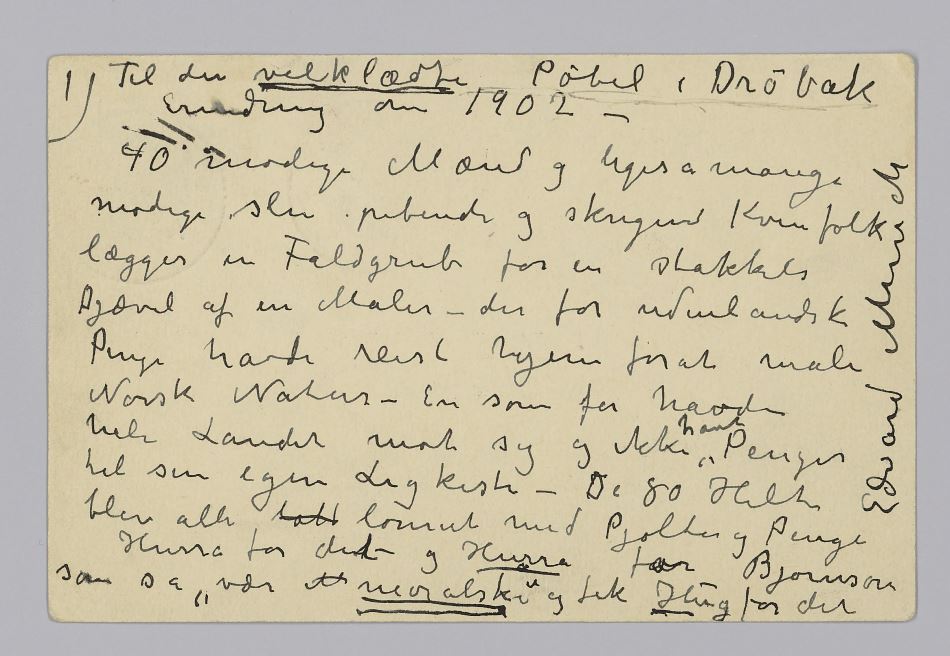 1) Til den velklædte Pöbel i Dröbak
Erindring om 1902 –
40 modige Mænd og ligesa mange
modige slu pibende og skrigend Kvinfolk
lægger en Faldgrube for en stakkels
Djævel af en Maler – der for udenlandsk
Penge havde reist hjem forat male
Norsk Natur – En som før havde
hele Landet mot sig og ikke havt Penger
til sin egen Ligkiste – De 80 Helte
blev alle lönnet med Pjolter og Penge
Hurra for det og Hurra for Björnson
som sa „vær moralske" og fik Hug for det
Edvard Munch